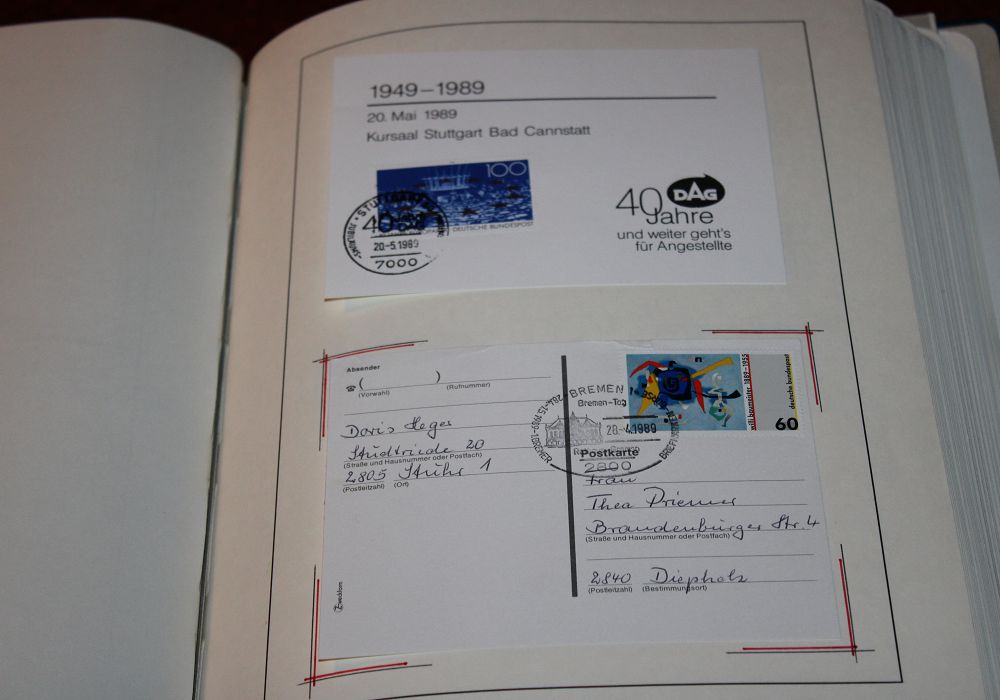 1949–1989
20. Mai 1989
Kursaal Stuttgart Bad Cannstatt
100
DEUTSCHE BUNDESPOST
STUTTGART
40
20.-5.1989
7000
DAG
40 Jahre
und weiter geht's
für Angestellte
Absender
( )
(Vorwahl) (Rufnummer)
Doris Heges
20
(Straße und Hausnummer oder Postfach)
2805 Stuhr 1
(Postleitzahl) (Ort)
willi baumeister 1889–1955
deutsche bundespost
60
BREMEN
Bremen-Tag
28.-4.1989
Postkarte
2800
Frau
Thea Priemer
Brandenburger Str. 4
(Straße und Hausnummer oder Postfach)
2840 Diepholz
(Postleitzahl) (Bestimmungsort)